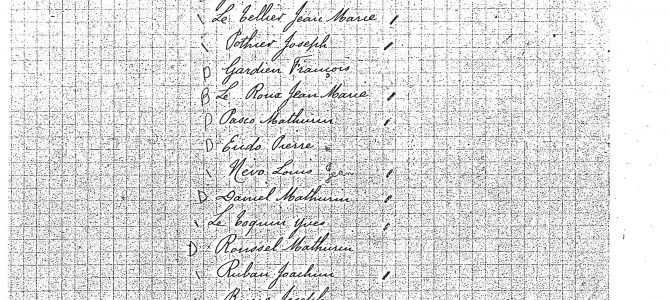 \ Le Tellier Jean Marie /
\ Pothier Joseph /
D Gardien François
B Le Roux Jean Marie /
D Pasco Mathurin /
D Eudo Pierre
\ Névo Louis Jean /
D Daniel Mathurin /
\ Le Toquin Yves /
D Roussel Mathurin
\ Ruban Joachim /
Joseph